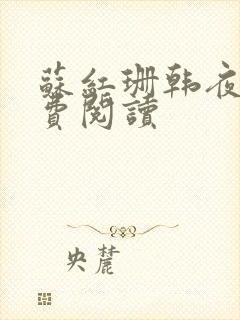 蘇紅珊韩夜
費閱讀
央麓